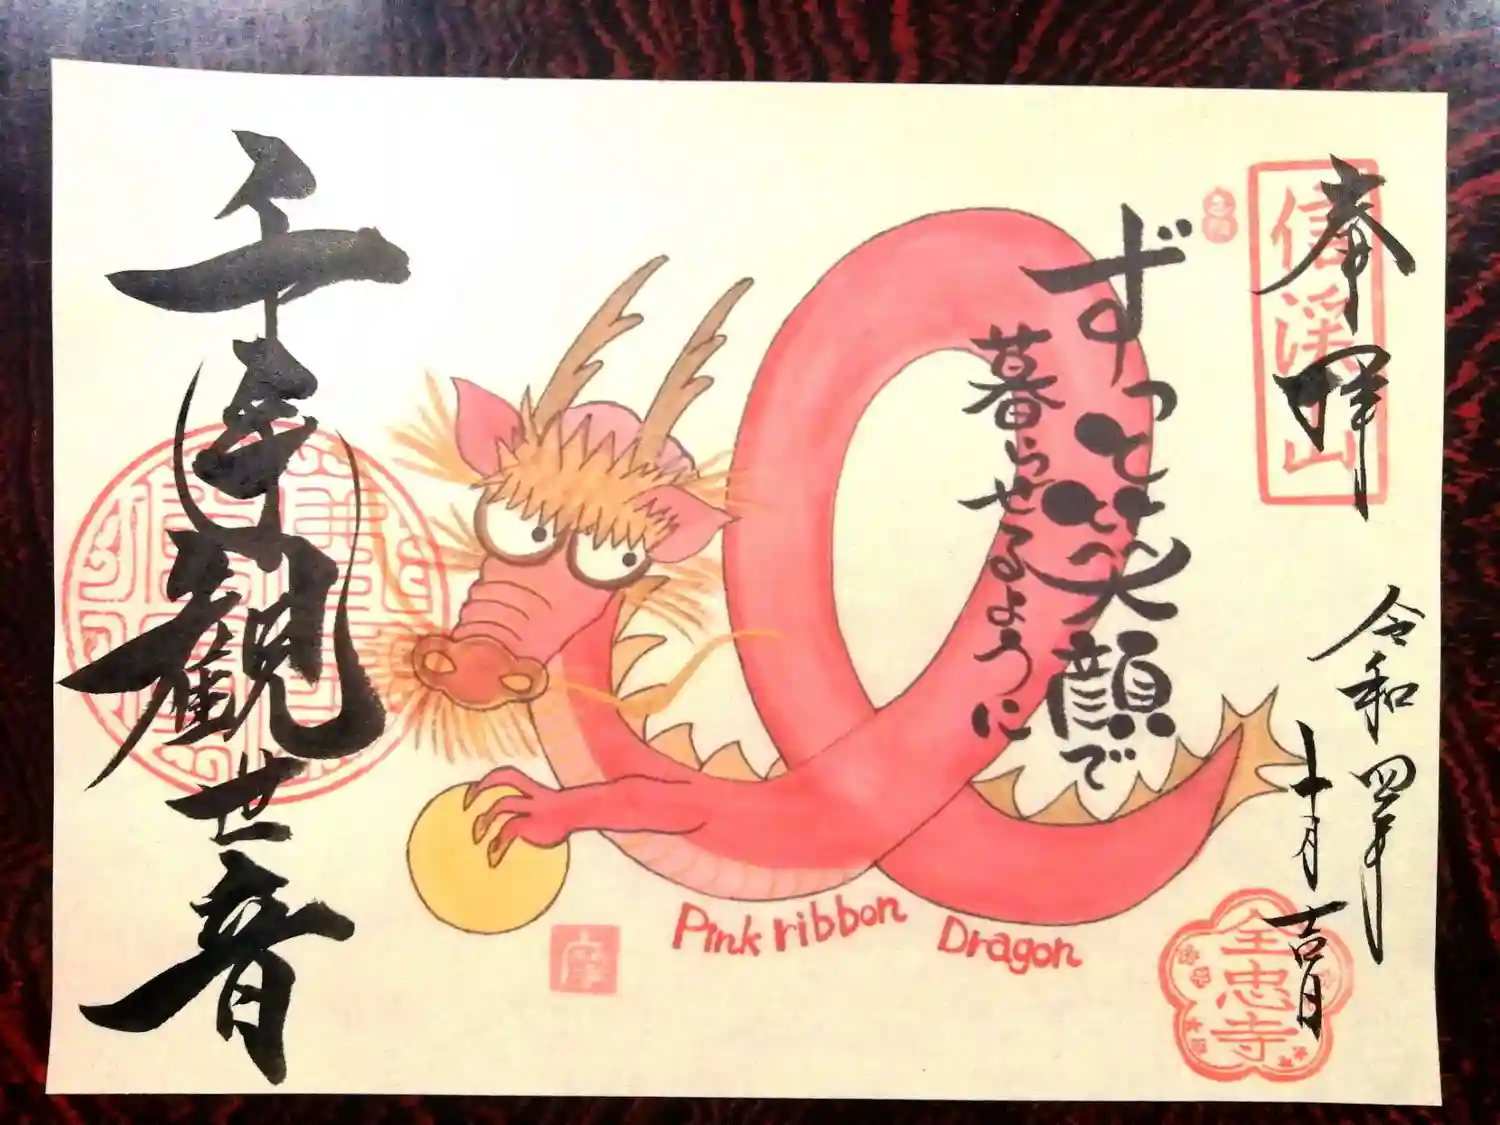 奉拝
信渓山
令和四年
十月吉日
全忠寺
ずっと笑顔で
暮らせるように
千手観世音
Pink ribbon Dragon